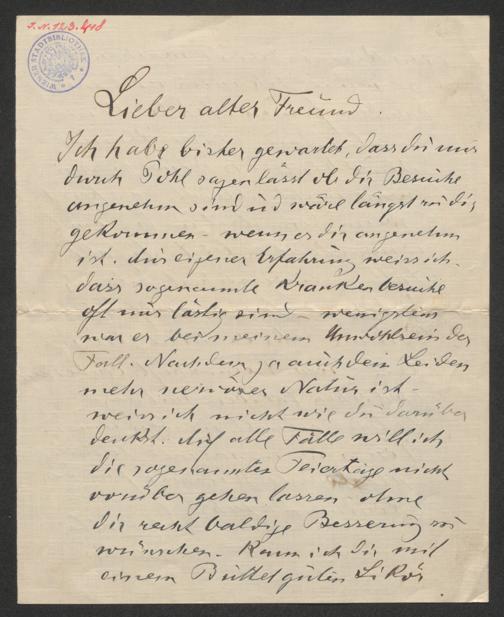 I.N. 123.418
WIENER STADTBIBLIOTHEK
Lieber alter Freund.
Ich habe bisher gewartet, dass du mir
durch Pohl sagen lässt ob dir Besuche
angenehm sind und wäre längst zu dir
gekommen – wenn es dir angenehm
ist. Aus eigener Erfahrung weiss ich
dass sogenannte Krankenbesuche
oft nur lästig sind – wenigstens
war es bei meinem Unwohlsein der
Fall. Nachdem ja auch dein Leiden
mehr nervöser Natur ist –
weiss ich nicht wie du darüber
denkst. Auf alle Fälle will ich
die sogenannten Feiertage nicht
vorüber gehen lassen ohne
dir recht baldige Besserung zu
wünschen. Kann ich dir mit
einem Buttel guten Likör